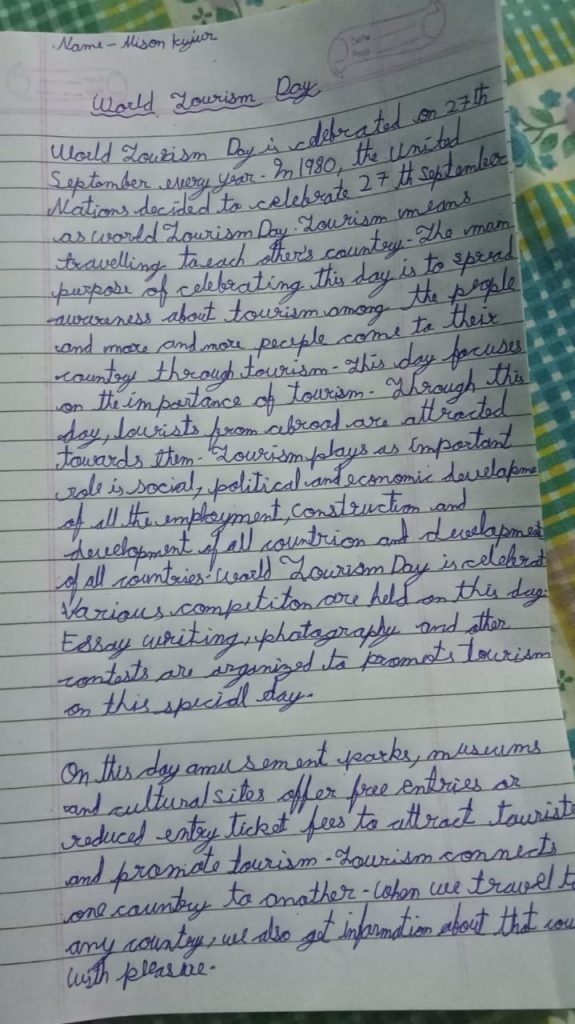 Name - Alison Kujur
World Tourism Day
World Tourism Day is celebrated on 27th
September every year. In 1980, the United
Nations decided to celebrate 27 th September
as world Tourism Day. Tourism means
travelling to each other's country. The main
purpose of celebrating this day is to spread
awareness about tourism among the people
and more and more people come to their
country through tourism. This day focuses
on the importance of tourism. Through this
day, tourists from abroad are attracted
towards them. Tourism plays as important
role is social, political and economic developme
of all the employment, construction and
development of all countrion and development
of all countries. World Tourism Day is celebrat
Various competiton are held on this day.
Essay writing, photography and other
contests are organized to promots tourism
on this special day.
On this day amusement parks, museums
and cultural sites offer free entries or
reduced entry ticket fees to attract tourists
and promote tourism. Tourism connects
one country to another. When we travel to
any country, we also get information about that cou
with pleasure.